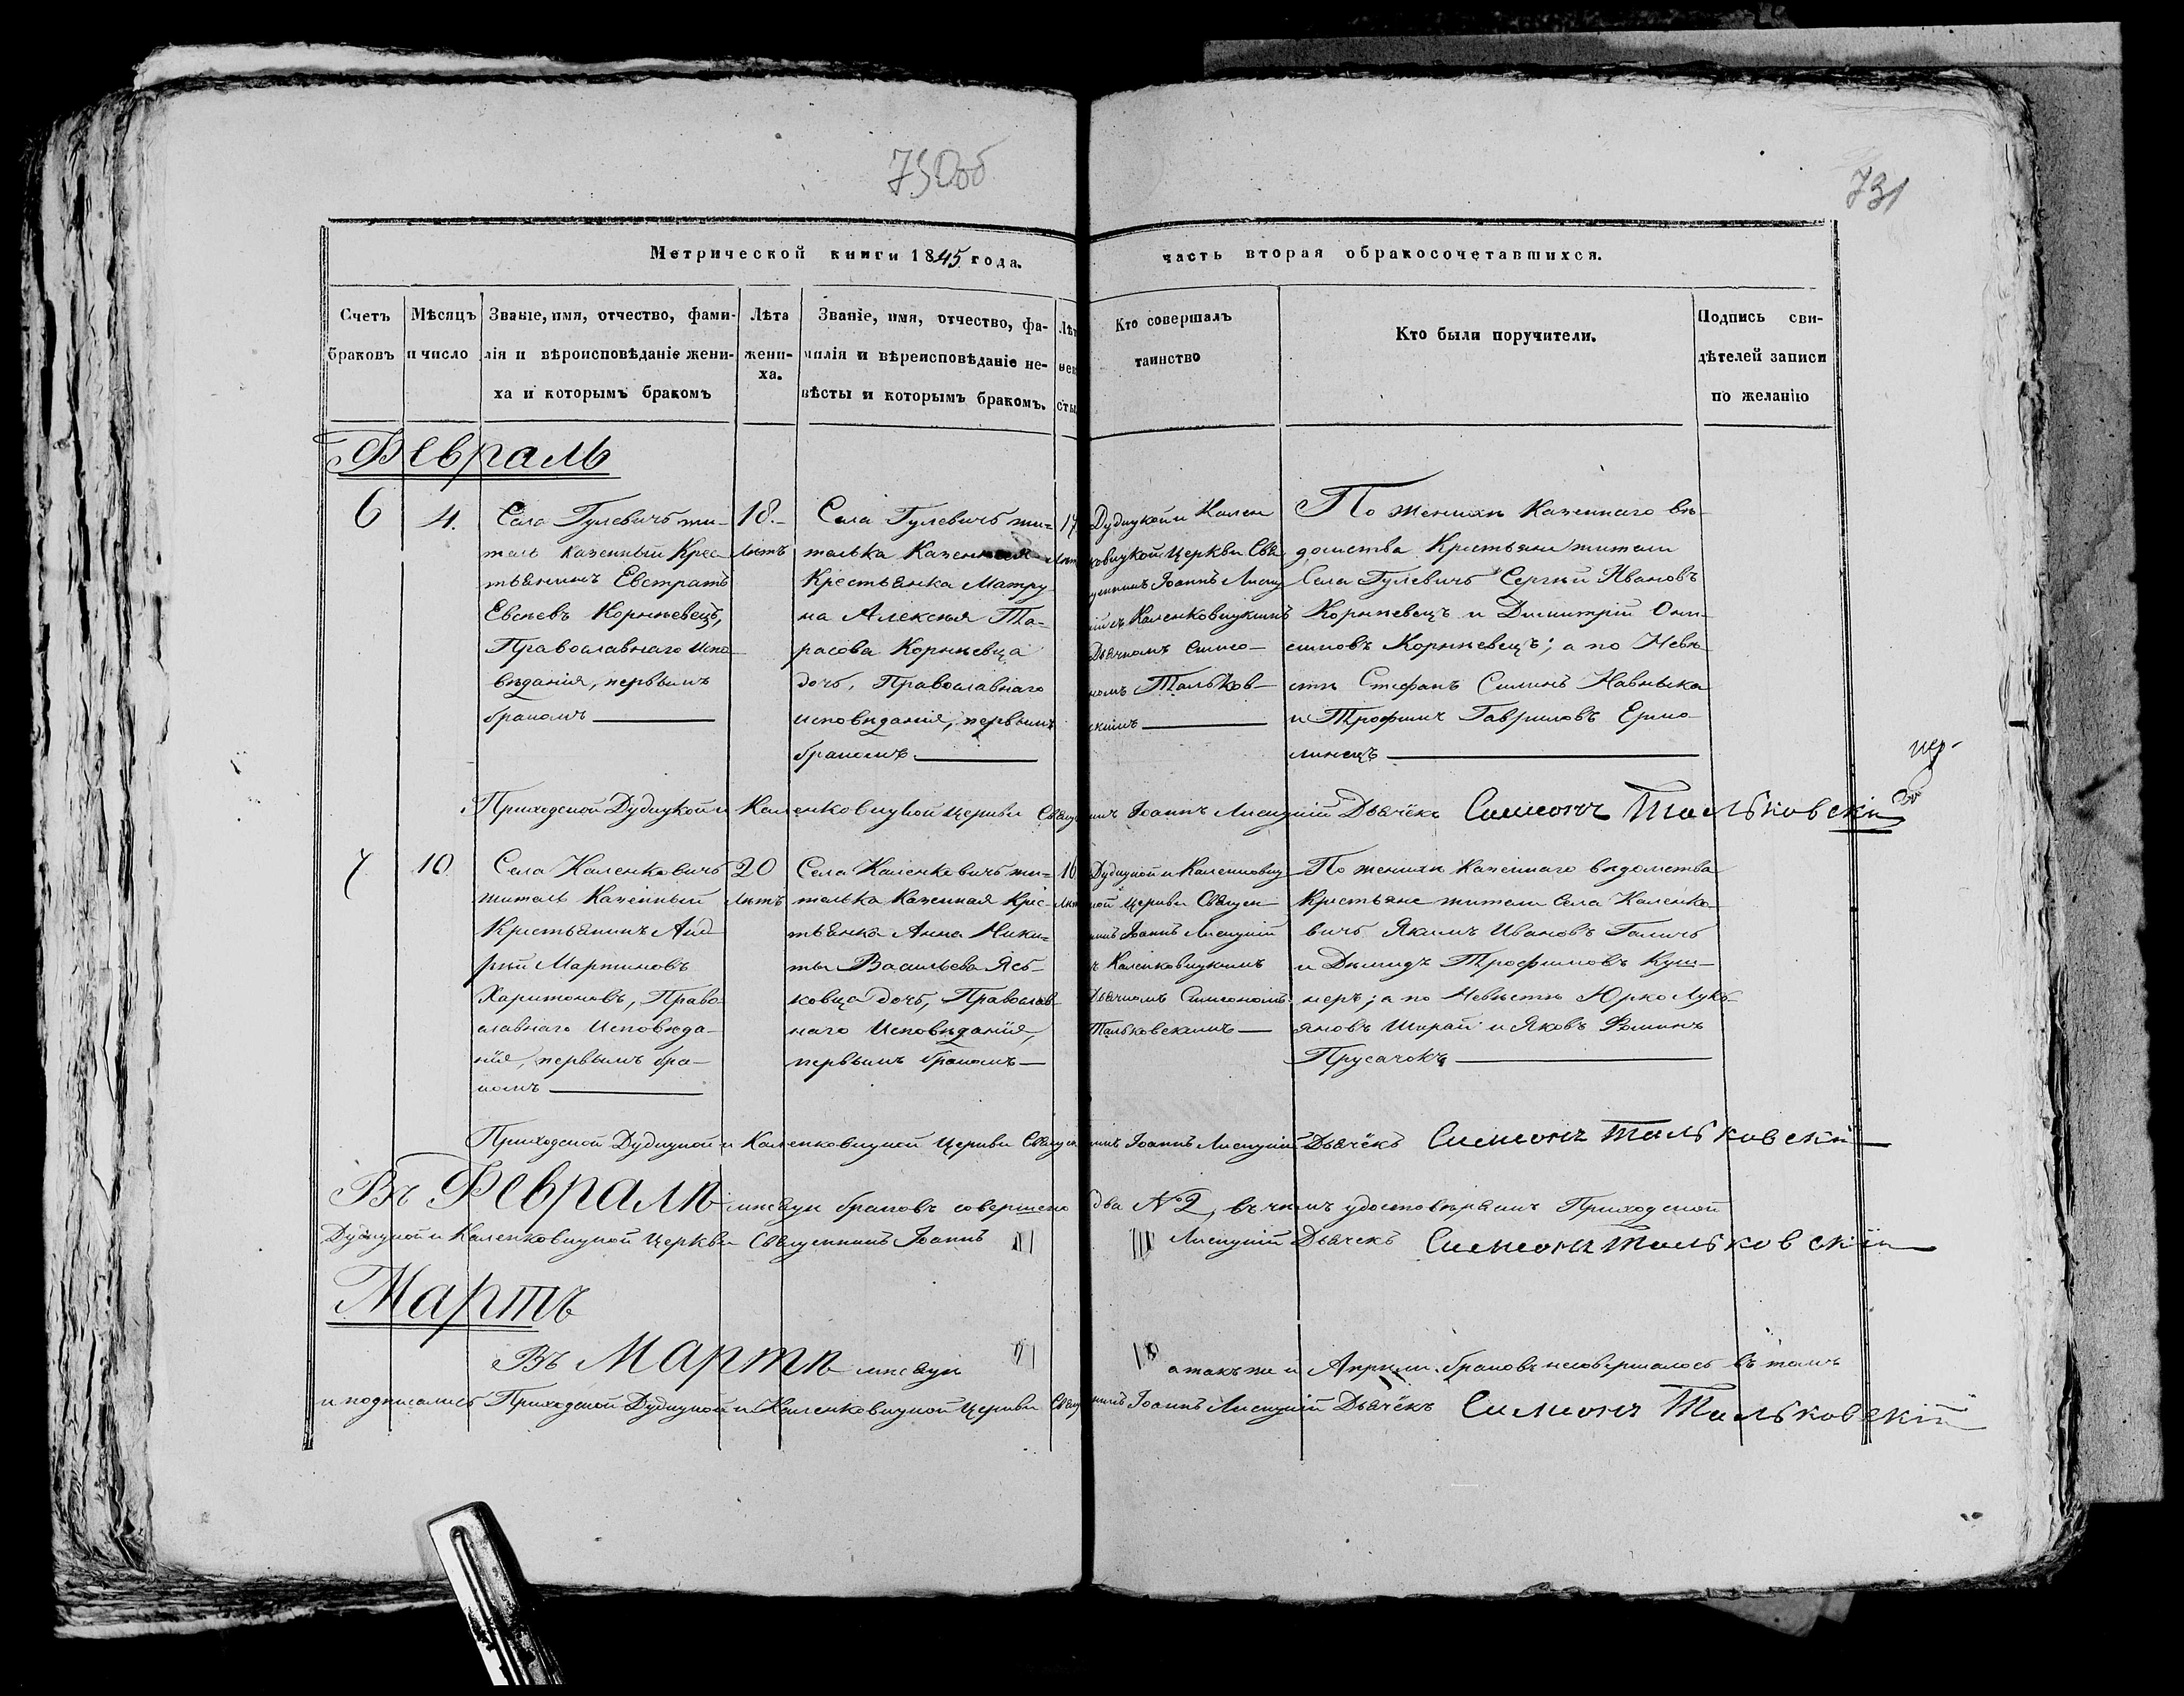 730об
731
Метрической книги 1845 года.
часть вторая обракосочетавшихся.
Счетъ браковъ
Мѣсяцъ и число
Званіе, имя, отчество, фами-
лія и вѣроисповѣданіе жени-
ха и которымъ бракомъ
Лѣта
жени-
ха.
Званіе, имя, отчество, фа-
милія и вѣреисповѣданіе не-
вѣсты и которымъ бракомъ.
Лѣт
нев
сты
Кто совершалъ
таинство
Кто были поручители.
Подпись сви-
дѣтелей записи
по желанію
Февраль
6
4.
Села Гулевичъ жи-
тель казенный Крес
тьянинъ Евстратъ
Евсѣевъ Корнѣевецъ,
Православнаго Испо-
вѣданія, первымъ
бракомъ
18.
лѣтъ
Села Гулевичъ жи=
телька Казенная
Крестьянка Матру
на Алексѣя Та-
расова Корнѣевца
дочь, Православнаго
исповѣданія, первымъ
бракомъ
17
лѣт
Дудицкой и Кален
ковицкой Церкви Свя
щенникъ Іоаннъ Лисиц
ій съ Каленковицкимъ
Дьячкомъ Симео-
номъ Тальков-
скимъ
По женихѣ Казеннаго вѣ-
домства Крестьяни жители
Села Гулевичъ Сергѣй Ивановъ
Корнѣевецъ и Димитрій Они-
симовъ Корнѣевецъ; а по Невѣ-
стѣ Стефанъ Силинъ Навныка
и Трофимъ Гавриловъ Ермо-
линецъ
Приходской Дудицкой и Каленковицкой церкви Священникъ Іоаннъ Лисицкій Дьячёкъ Симеонъ Тальковскій
7
10
Села Каленковичъ
житель Казенный
Крестьянинъ Анд
рѣй Мартиновъ
Харитоновъ, Право-
славнаго Исповѣда-
нія, первымъ бра-
комъ
20
лѣтъ
Села Каленковичъ жи=
телька Казенная Крес-
тьянка Анна Ники=
ты Васильева Ясь-
ковца дочь, Православ-
наго Исповѣданія,
первымъ бракомъ
16
лѣт
Дудицкой и Каленковиц
кой Церкви Священ
никъ Іоаннъ Лисицкій
съ Каленковицкимъ
Дьячкомъ Симеономъ
Тальковскимъ
По женихѣ казеннаго вѣдомства
Крестьяне жители Села Каленко-
вичъ Якимъ Ивановъ Галичъ
и Дѣмидъ Трофимовъ Куш-
неръ; а по Невѣстѣ Юрко Лукь
яновъ Шкрай и Яковъ Фоминъ
Прусачокъ
Приходской Дудицкой и Каленковицкой Церкви Священникъ Іоаннъ Лисицкій Дьячёкъ Симеонъ Тальковскій
Въ Февралѣ мѣсяцѣ браковъ совершено два № 2, въ чемъ удостовѣряемъ Приходской
Дудицкой и Каленковицкой Церкви Священникъ Іоаннъ Лисицкій Дьячекъ Симеонъ Тальковскій
Мартъ
Въ Мартѣ мѣсяцѣ а такъже и Апрѣли браковъ несовершалось въ томъ
и подписались Приходской Дудицкой и Каленковицкой Церкви Священникъ Іоаннъ Лисицкій Дьячёкъ Симеонъ Тальковскій